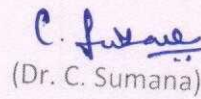 C. Sumana
(Dr. C. Sumana)